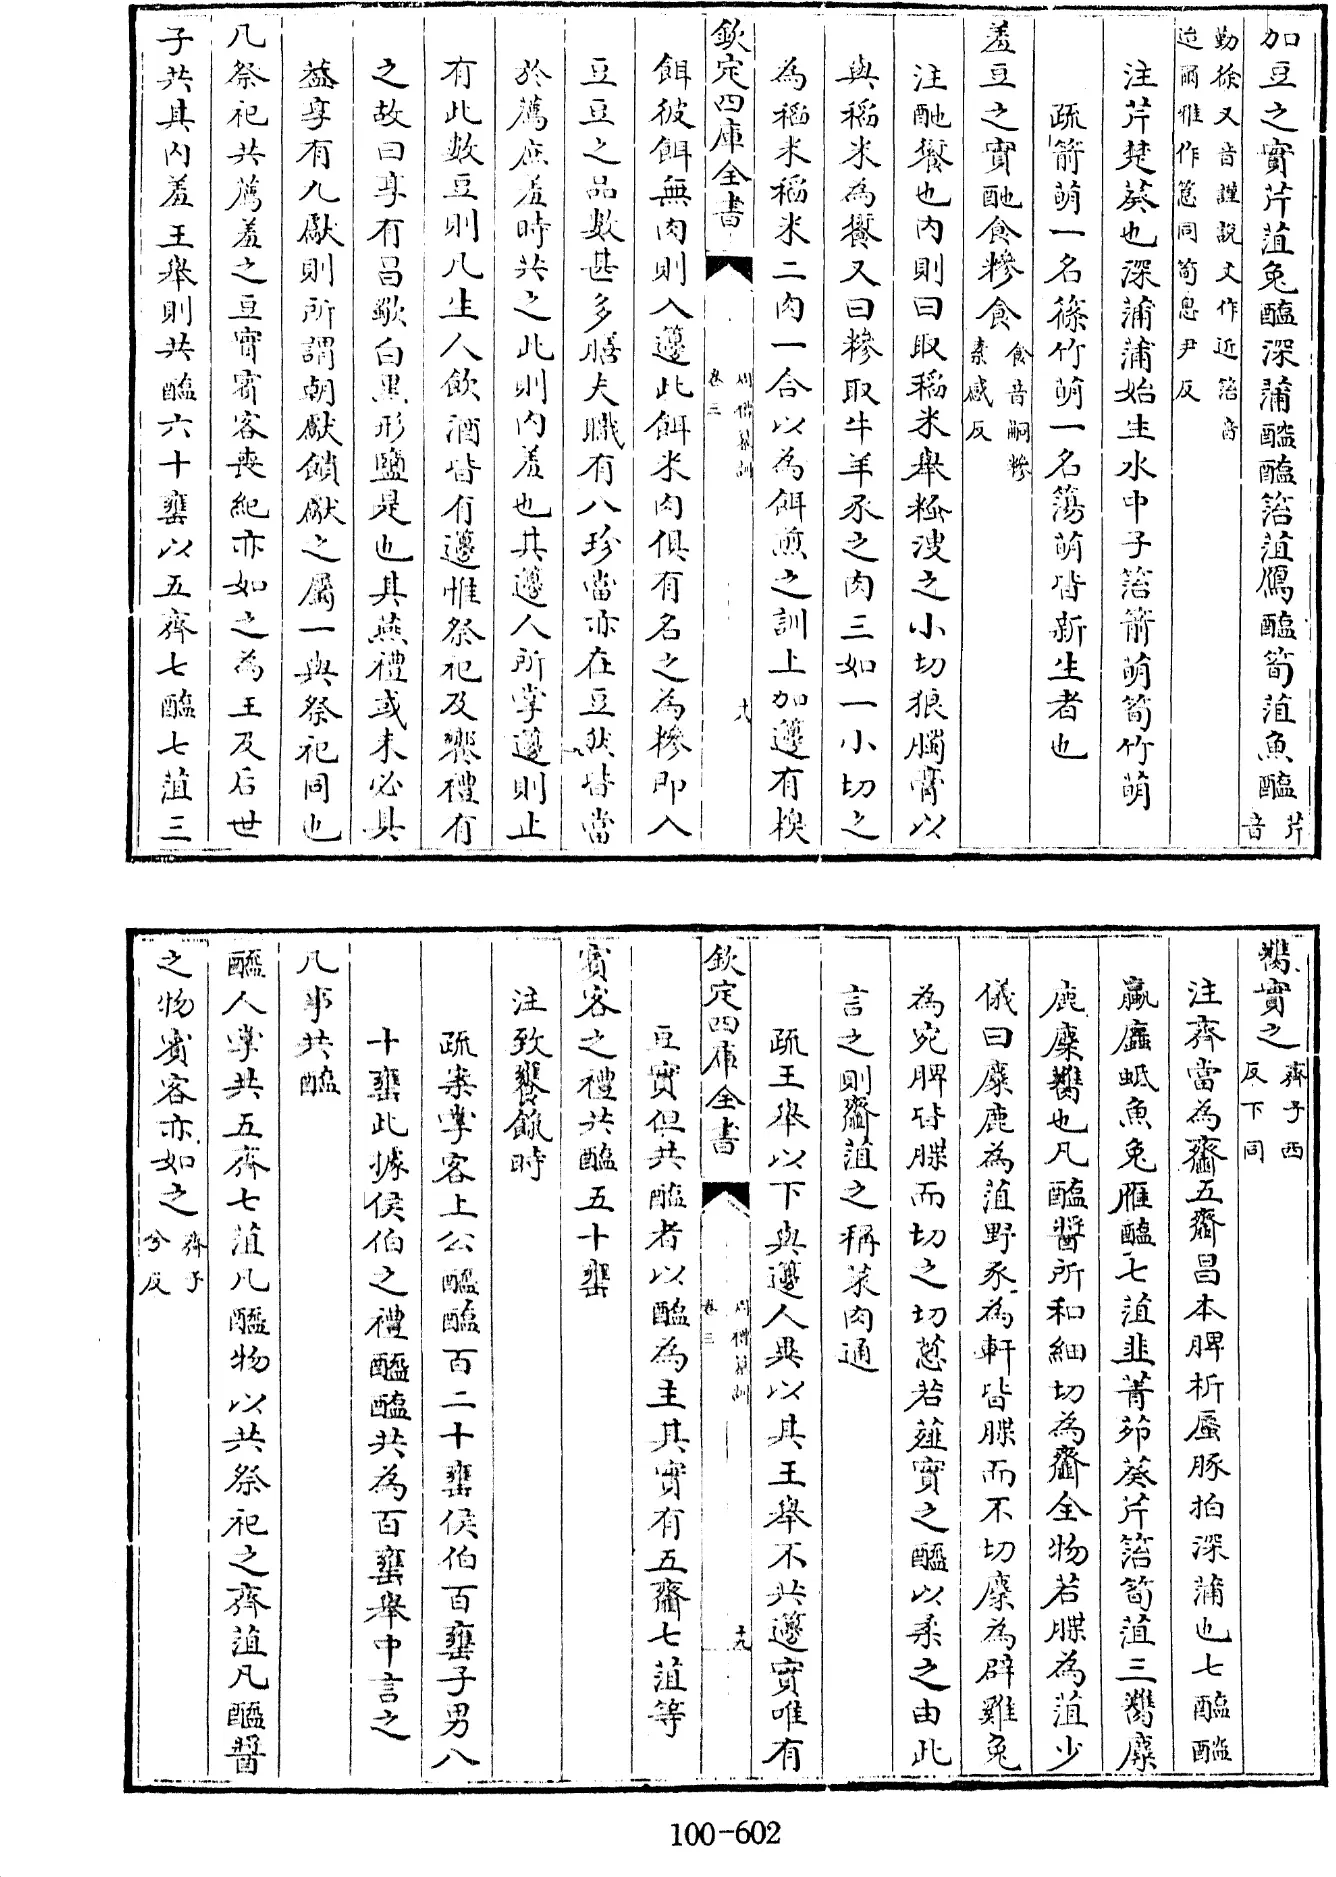 加豆之實芹菹兔醢深蒲醓醢箈菹鴈醢筍菹魚醢芹音
勤徐又音謹說文作近箈音
迨爾雅作䈚同筍息尹反
注芹楚葵也深蒲蒲始生水中子箈箭萌筍竹萌
疏箭萌一名篠竹萌一名簜萌皆新生者也
羞豆之實酏食糝食食音嗣糝
素感反
注酏餰也内則曰取稻米舉糔溲之小切狼臅膏以
與稻米為餰又曰糝取牛羊豕之肉三如一小切之
為稻米稻米二肉一合以為餌煎之訓上加籩有糗
欽定四庫全書
周禮纂訓
卷三
十八
餌彼餌無肉則入籩此餌米肉俱有名之為糝即入
豆豆之品數甚多膳夫職有八珍當亦在豆然皆當
於薦庶羞時共之此則内羞也其籩人所掌籩則止
有此數豆則凡生人飲酒皆有籩惟祭祀及饗禮有
之故曰享有昌歜白黑形鹽是也其燕禮或未必具
葢享有九獻則所謂朝獻饋獻之屬一與祭祀同也
凡祭祀共薦羞之豆實賓客喪紀亦如之為王及后世
子共其内羞王舉則共醢六十罋以五齊七醢七菹三
臡實之齊子西
反下同
注齊當為齏五齏昌本脾析蜃豚拍深蒲也七醢醓
蠃蠯蚳魚兔雁醢七菹韭菁茆葵芹箈筍菹三臡麋
鹿麇臡也凡醢醬所和細切為齏全物若䐑為菹少
儀曰麋鹿為菹野豕為軒皆䐑而不切麇為辟雞兔
為宛脾皆䐑而切之切葱若薤實之醯以柔之由此
言之則齏菹之稱菜肉通
疏王舉以下與籩人異以其王舉不共籩實唯有
欽定四庫全書
周禮纂訓
卷三
十九
豆實但共醢者以醢為主其實有五齏七菹等
賓客之禮共醢五十罋
注致饔餼時
疏案掌客上公醯醢百二十罋侯伯百罋子男八
十罋此據侯伯之禮醯醢共為百罋舉中言之
凡事共醢
醯人掌共五齊七菹凡醯物以共祭祀之齊菹凡醯醬
之物賓客亦如之齊子
兮反
100-602